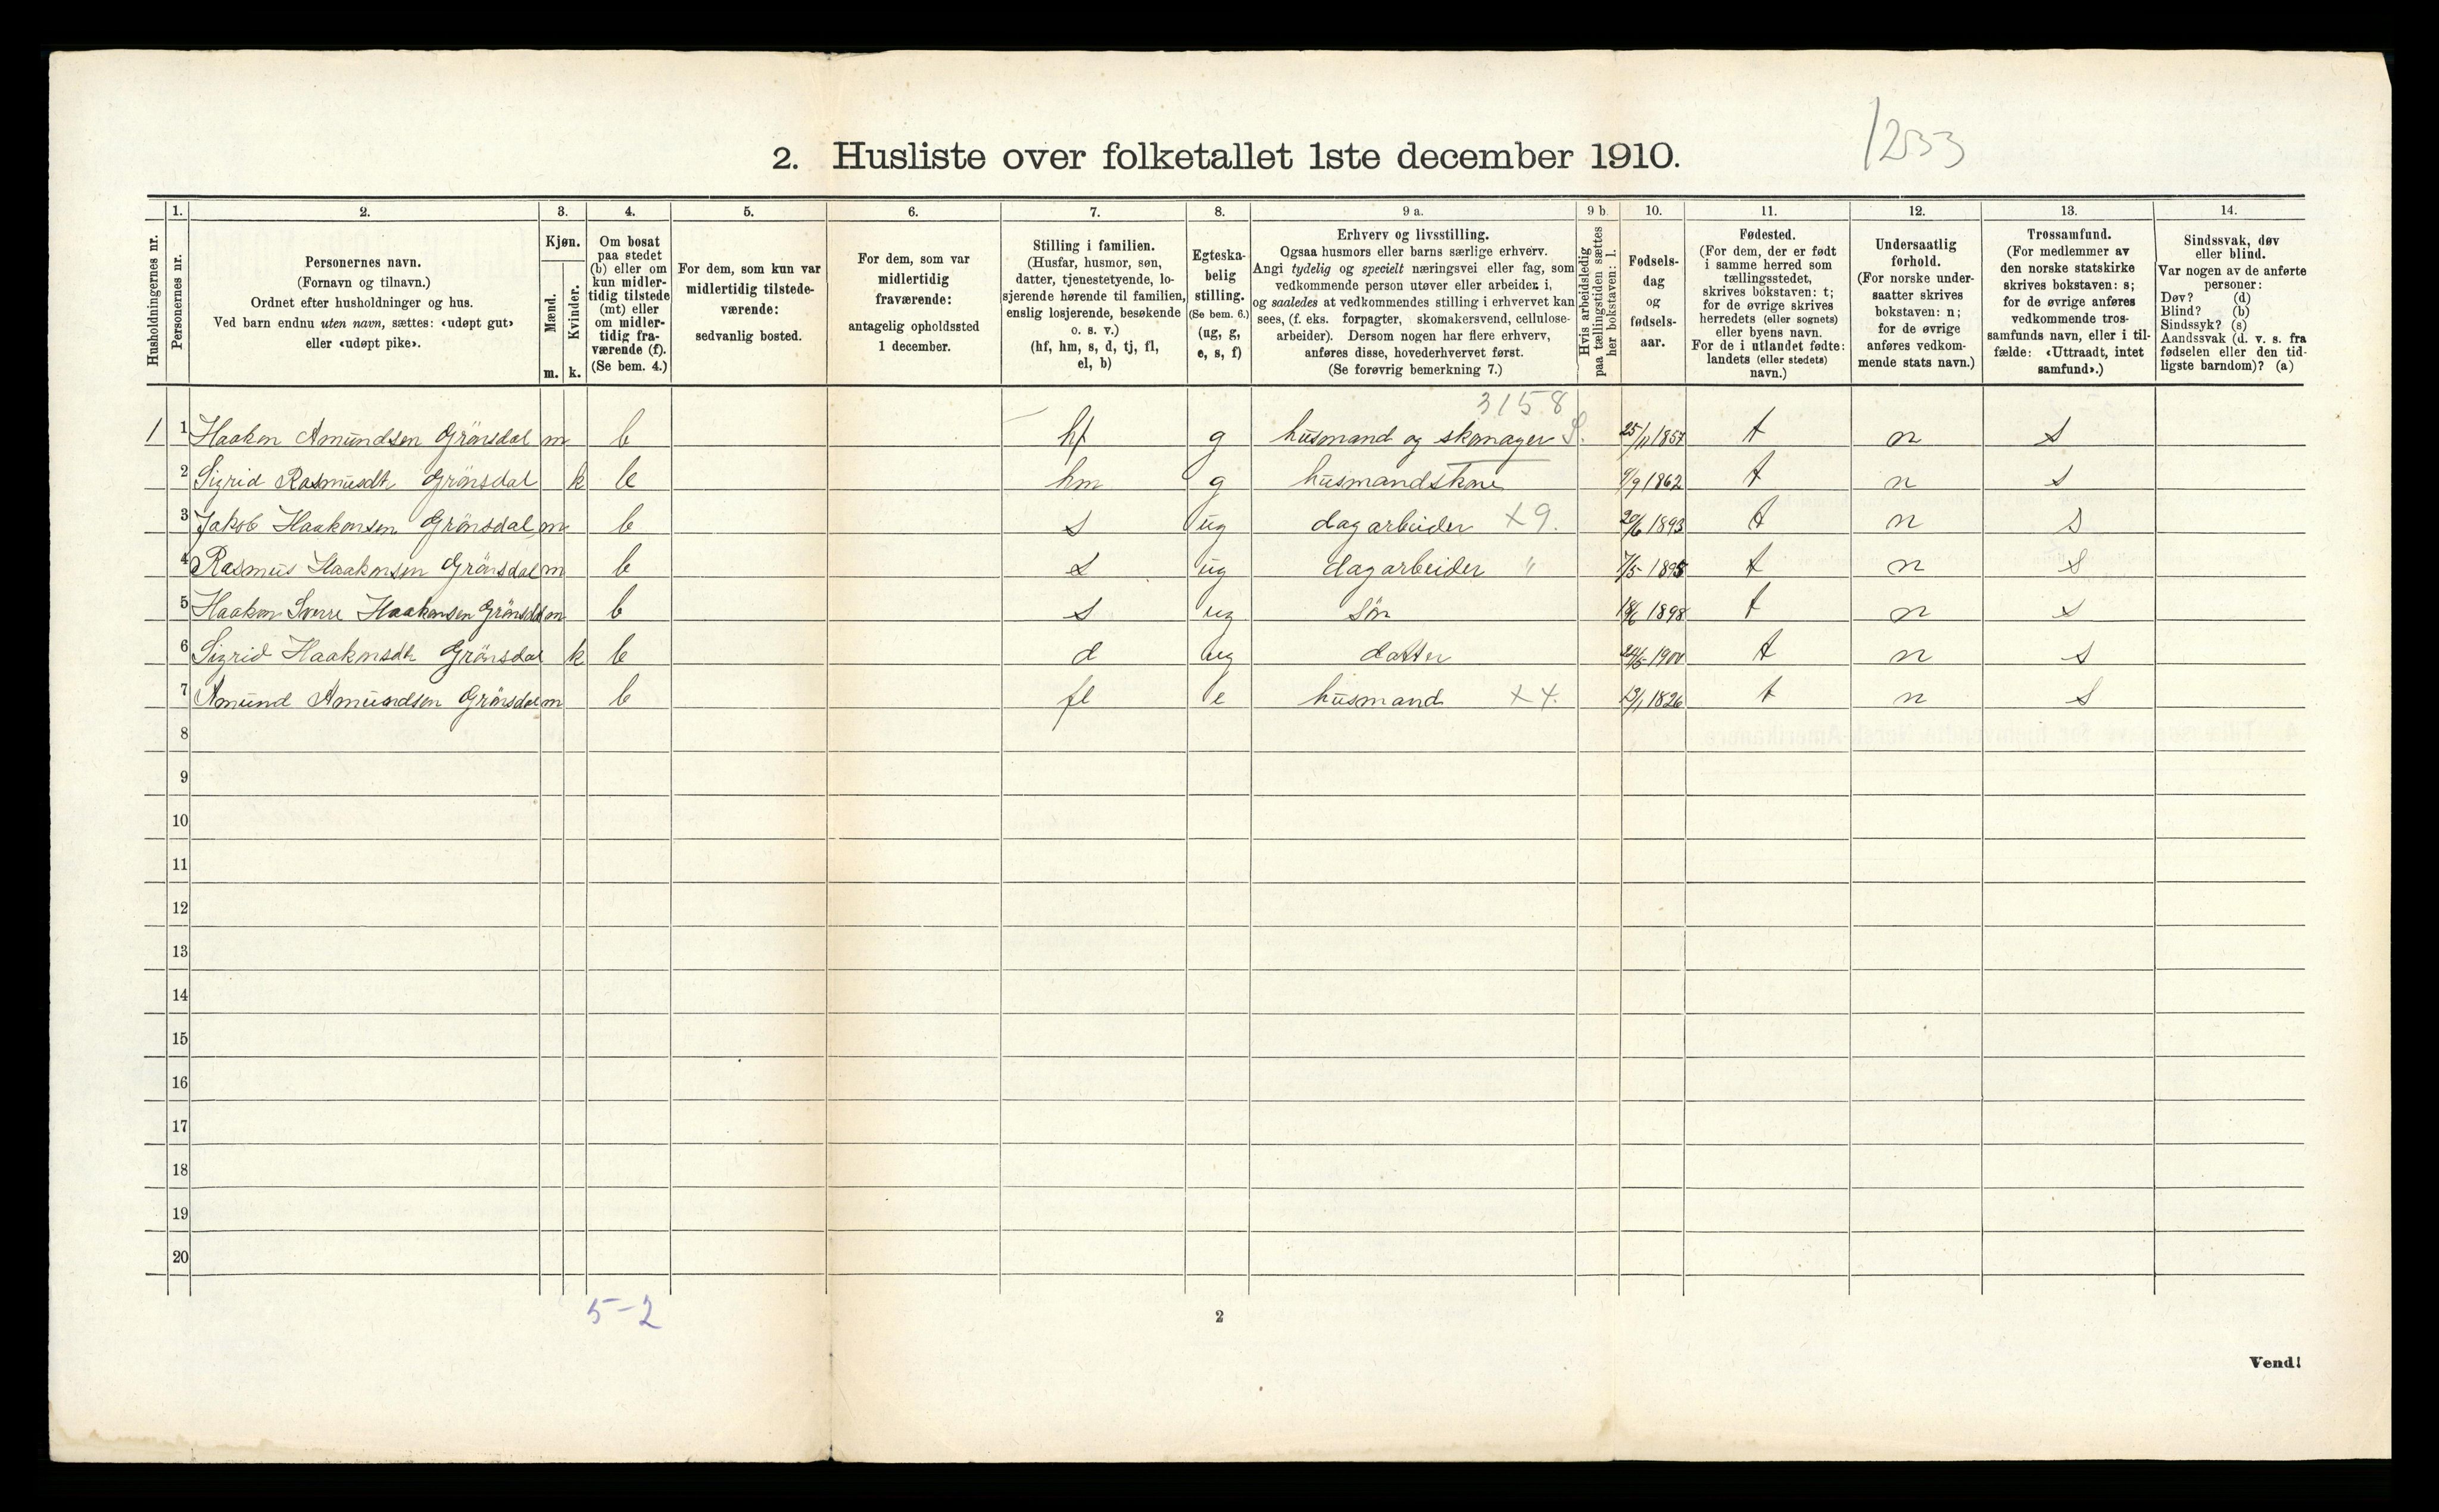 2. Husliste over folketallet 1ste december 1910.
1233
Husholdningernes nr.
1.
Personernes nr.
2.
Personernes navn.
(Fornavn og tilnavn.)
Ordnet efter husholdninger og hus.
Ved barn endnu uten navn, sættes: «udøpt gut»
eller «udøpt pike».
3.
Kjøn.
Mænd.
Kvinder.
m. k.
4.
Om bosat
paa stedet
(b) eller om
kun midler-
tidig tilstede
(mt) eller
om midler-
tidig fra-
værende (f).
(Se bem. 4.)
5.
For dem, som kun var
midlertidig tilstede-
værende:
sedvanlig bosted.
6.
For dem, som var
midlertidig
fraværende:
antagelig opholdssted
1 december.
7.
Stilling i familien.
(Husfar, husmor, søn,
datter, tjenestetyende, lo-
sjerende hørende til familien,
enslig losjerende, besøkende
o. s. v.)
(hf, hm, s, d, tj, fl,
el, b)
8.
Egteska-
belig
stilling.
(Se bem. 6.)
(ug, g,
e, s, f)
9 a.
Erhverv og livsstilling.
Ogsaa husmors eller barns særlige erhverv.
Angi tydelig og specielt næringsvei eller fag, som
vedkommende person utøver eller arbeider i,
og saaledes at vedkommendes stilling i erhvervet kan
sees, (f. eks. forpagter, skomakersvend, cellulose-
arbeider). Dersom nogen har flere erhverv,
anføres disse, hovederhvervet først.
(Se forøvrig bemerkning 7.)
9 b.
Hvis arbeidsledig
paa tællingstiden sættes
her bokstaven: l.
10.
Fødsels-
dag
og
fødsels-
aar.
11.
Fødested.
(For dem, der er født
i samme herred som
tællingsstedet,
skrives bokstaven: t;
for de øvrige skrives
herredets (eller sognets)
eller byens navn.
For de i utlandet fødte:
landets (eller stedets)
navn.)
12.
Undersaatlig
forhold.
(For norske under-
saatter skrives
bokstaven: n;
for de øvrige
anføres vedkom-
mende stats navn.)
13.
Trossamfund.
(For medlemmer av
den norske statskirke
skrives bokstaven: s;
for de øvrige anføres
vedkommende tros-
samfunds navn, eller i til-
fælde: «Uttraadt, intet
samfund».)
14.
Sindssvak, døv
eller blind.
Var nogen av de anførte
personer:
Døv? (d)
Blind? (b)
Sindssyk? (s)
Aandssvak (d. v. s. fra
fødselen eller den tid-
ligste barndom)? (a)
3158
1 1 Haakon Amundsen Grönsdal m b hf g husmand og skomager S. 25/11 1857 t n s
2 Sigrid Rasmusdtr Grönsdal k b hm g husmandskone /9 1862 t n s
3 Jakob Haakonsen Grönsdal m b s ug dagarbeider x9. 20/6 1893 t n s
4 Rasmus Haakonsen Grönsdal m b s ug dagarbeider " 7/5 1895 t n s
5 Haakon Sverre Haakonsen Grönsdal m b s ug Sön 18/6 1898 t n s
6 Sigrid Haakonsdtr Grönsdal k b d ug datter 24/5 1900 t n s
7 Amund Amundsen Grönsdal m b fl e husmand x4. 13/1 1826 t n s
8
9
10
11
12
13
14
15
16
17
18
19
20
5-2
2
Vend!